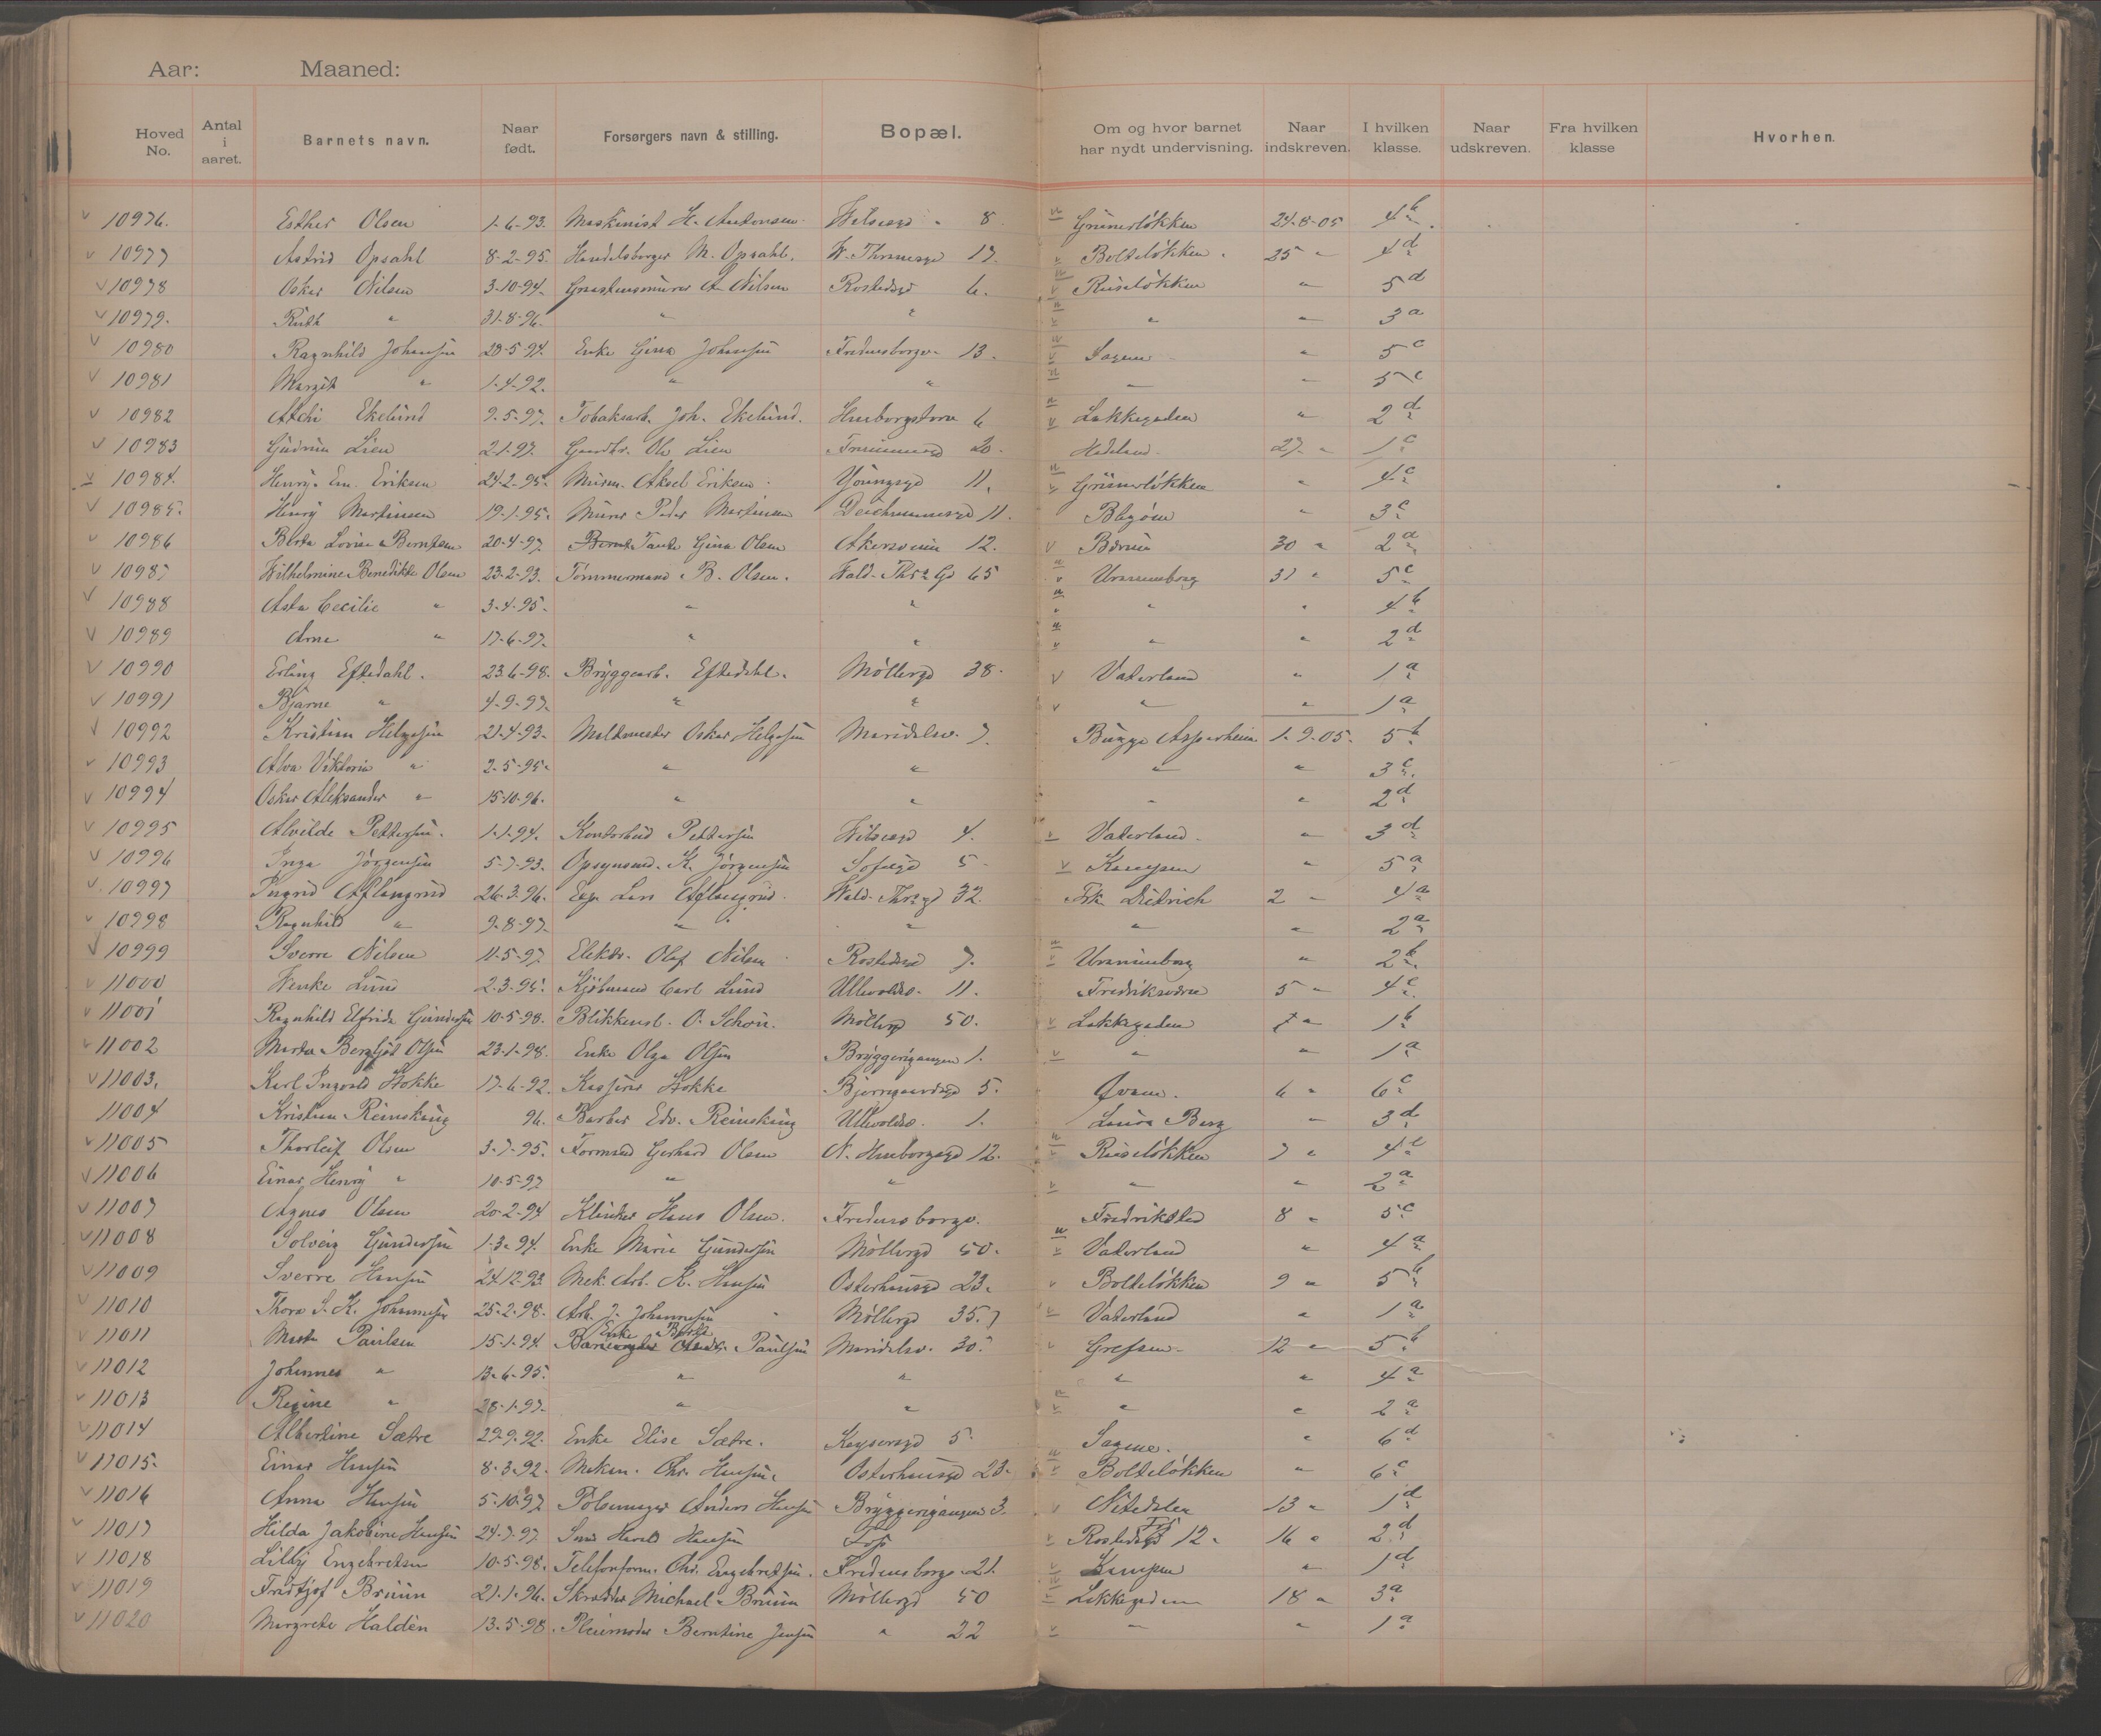 Aar: Maaned:
Hoved No. Antal i aaret. Barnets navn. Naar født. Forsørgers navn & stilling. Bopæl. Om og hvor barnet har nydt undervisning. Naar indskreven. I hvilken klasse. Naar udskreven. Fra hvilken klasse Hvorhen.
v 10976. Esther Olsen 1-6-93. Maskinist H. Antonsen 8 Grünerløkken 24-8-05 4b
v 10977 Astrid Opsahl 8-2-95. Handelsborger M. Opsahl. W. Thranesgd 17. v Bolteløkken 25 " 4d
v 10978 Oskar Nilsen 3-10-94. A. Nilsen Rostedsgd 6. v Ruseløkken " 5d
v 10979. Ruth " 31-8-96. " " v " " 3a
v 10980 Ragnhild Johansen 28-5-94. Enke Gina Johansen Fredensborgv. 13. v Sagene " 5c
v 10981 Margit " 1-4-92. " " " " 5c
v 10982 Ekelund 9-5-97. Tobaksarb. Joh. Ekelund. 6 v Lakkegaden " 2d
v 10983 Gudrun Lien 2-1-97. Ole Lien 20. Hedeland 27. " 1c
v 10984. Henry Em. Eriksen 24-2-95. Murm. Aksel Eriksen Youngsgd 11. v Grünerløkken " 4c
v 10985. Henry Martinsen 19-1-95. Murer Peder Martinsen Deichmannsgd 11. " 3c
v 10986 Lovise Berntsen 20-4-97. Tante Gina Olsen Akersveien 12. v Bærum 30 " 2a
v 10987 Wilhelmine Benedikte Olsen 23-2-93. Tømmermand B. Olsen. Wald. Thrs Gd 65 v Uranienborg 31 " 5c
v 10988 Asta Cecilie " 3-4-95. " " " " 4b
v 10989 Arne " 17-6-97. " " v " " 2d
v 10990 Erling Eftedahl. 23-6-98. Bryggearb. Eftedahl. Møllergd 38. v Vaterland " 1a
v 10991 Bjarne " 4-9-97. " " v " " 1a
v 10992 Kristian Helgesen 21-4-93. Maltmester Oskar Helgesen Maridalsv. 7. Bugge Asperheim 1-9-05. 5b
v 10993 Alva Viktoria " 2-5-95. " " " " 3c.
v 10994 Oskar Aleksander " 15-10-96. " " " " 2d
v 10995 Alvilde Pettersen. 1-1-94. Kontorbud Pettersen 4. v Vaterland. " 3d
v 10996 Inga Jørgensen 5-7-93. Opsynsmd. K. Jørgensen Sofiegd 5. v Kampen " 5a
v 10997 Ingrid 26-3-96. Lars Wald. Thrsgd 32. Frk. Dietrich 2 " 4a
v 10998 Ragnhild " 9-8-97. " " " " 2a
v 10999 Sverre Nilsen 11-5-97. Elektr. Olaf Nilsen Rostedsgd 7. v Uranienborg " 2b
v 11000 Wenke Lund 2-3-95. Kjøbmand Carl Lund Ullevoldsv. 11. Fredriksværn 5 " 4c.
v 11001 Ragnhild Elfrida Gundersen 10-5-98. Blikkensl. O. Schou. Møllergd 50. v Lakkegaden 7 " 1b
v 11002 Marta Bergljot Olsen 23-1-98. Enke Olga Olsen Bryggerigangen 1. v " " 1a
v 11003. Karl Ingvald Stokke 17-6-92. Kasserer Stokke Bjerregaardsgd 5. 6 " 6c
11004 Kristian Reinskoug 96. Barber Edv. Reinskoug Ullevoldsv. 1. Berg " 3d
v 11005 Thorleif Olsen 3-7-95. Formand Gerhard Olsen 12. v Ruseløkken 7 "
v 11006 Einar Henry " 10-5-97 " " v " " 2a
v 11007 Agnes Olsen 20-2-94 Hans Olsen. Fredensborgv. Fredrikstad 8 " 5c
v 11008 Solveig Gundersen 1-3-94. Enke Marie Gundersen Møllergd 50. v Vaterland " 4a
v 11009 Sverre Hansen 24-12-93. Mek. Arb. K. Hansen Osterhausgd 23. v Bolteløkken 9 " 5b
v 11010 Thora S. K. Johannesen 25-2-98. Arb. J. Johannesen Møllergd 35. v Vaterland " 1a
v 11011 Marta Paulsen 15-1-94. Enke Berthe Paulsen Maridalsv. 30. v Grefsen 12 " 5b
v 11012 Johannes " 13-6-95. " " " " 4a
v 11013 Regine " 28-1-97. " " v " " 2a
v 11014 Albertine Sætre 29-9-92. Enke Elise Sætre. Keysersgd 5. Sagene. " 6d
v 11015. Einar Hansen 8-3-92. Mekan. Chr. Hansen. Osterhausgd 23. v Bolteløkken " 6c
v 11016 Anna Hansen 5-10-97 Pølsemager Anders Hansen Bryggerigangen 3. v Nitedalen 13 " 1d
v 11017 Hilda Jakobine Hansen 24-7-97 Smed Harald Hansen v Rostedsgd 12. 16 " 2d
v 11018 Lilly Engebretsen 10-5-98. Telefonform. Chr. Engebretsen. Fredensborgv. 21. v Kampen " 1d
v 11019 Fridtjof Bruun 21-1-96. Skrædder Michael Bruun Møllergd 50 v Lakkegaden 18 " 3a
v 11020 Margrete Haldén 13-5-98. Pleiemoder Berntine Jensen " 22 v " " 1a